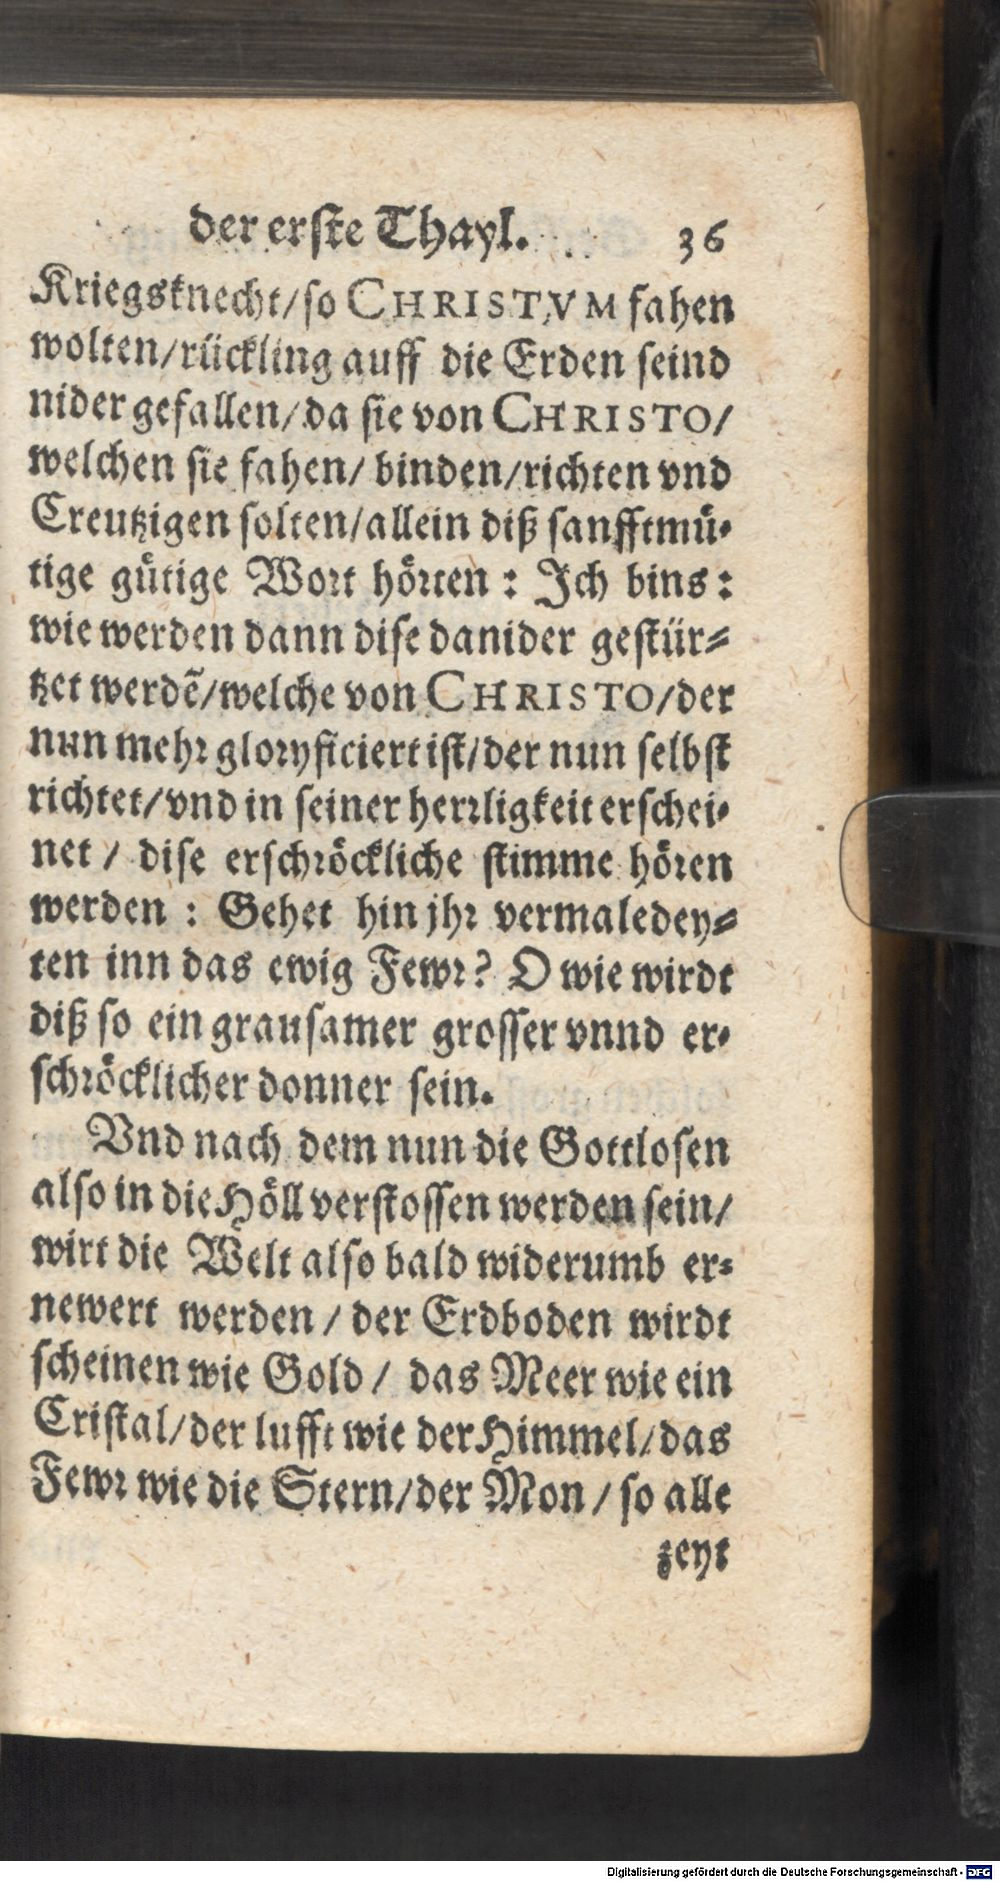 der erste Thayl. 36
Kriegsknecht/so CHRISTVM fahen
wolten/rückling auff die Erden seind
nider gefallen/da sie von CHRISTO/
welchen sie fahen/ binden/richten vnd
Creutzigen solten/allein diß sanfftmü-
tige gütige Wort hörten : Ich bins :
wie werden dann dise danider gestür-
tzet werdẽ/welche von CHRISTO/der
nun mehr gloryficiert ist/der nun selbst
richtet/vnd in seiner herrligkeit erschei-
net / dise erschröckliche stimme hören
werden : Gehet hin jhr vermaledey-
ten inn das ewig Fewr? O wie wirdt
diß so ein grausamer grosser vnnd er-
schröcklicher donner sein.
Vnd nach dem nun die Gottlosen
also in die Höll verstossen werden sein/
wirt die Welt also bald widerumb er-
newert werden / der Erdboden wirdt
scheinen wie Gold / das Meer wie ein
Cristal/der lufft wie der Himmel/das
Fewr wie die Stern/der Mon / so alle
zeyt
Digitalisierung gefördert durch die Deutsche Forschungsgemeinschaft - DFG